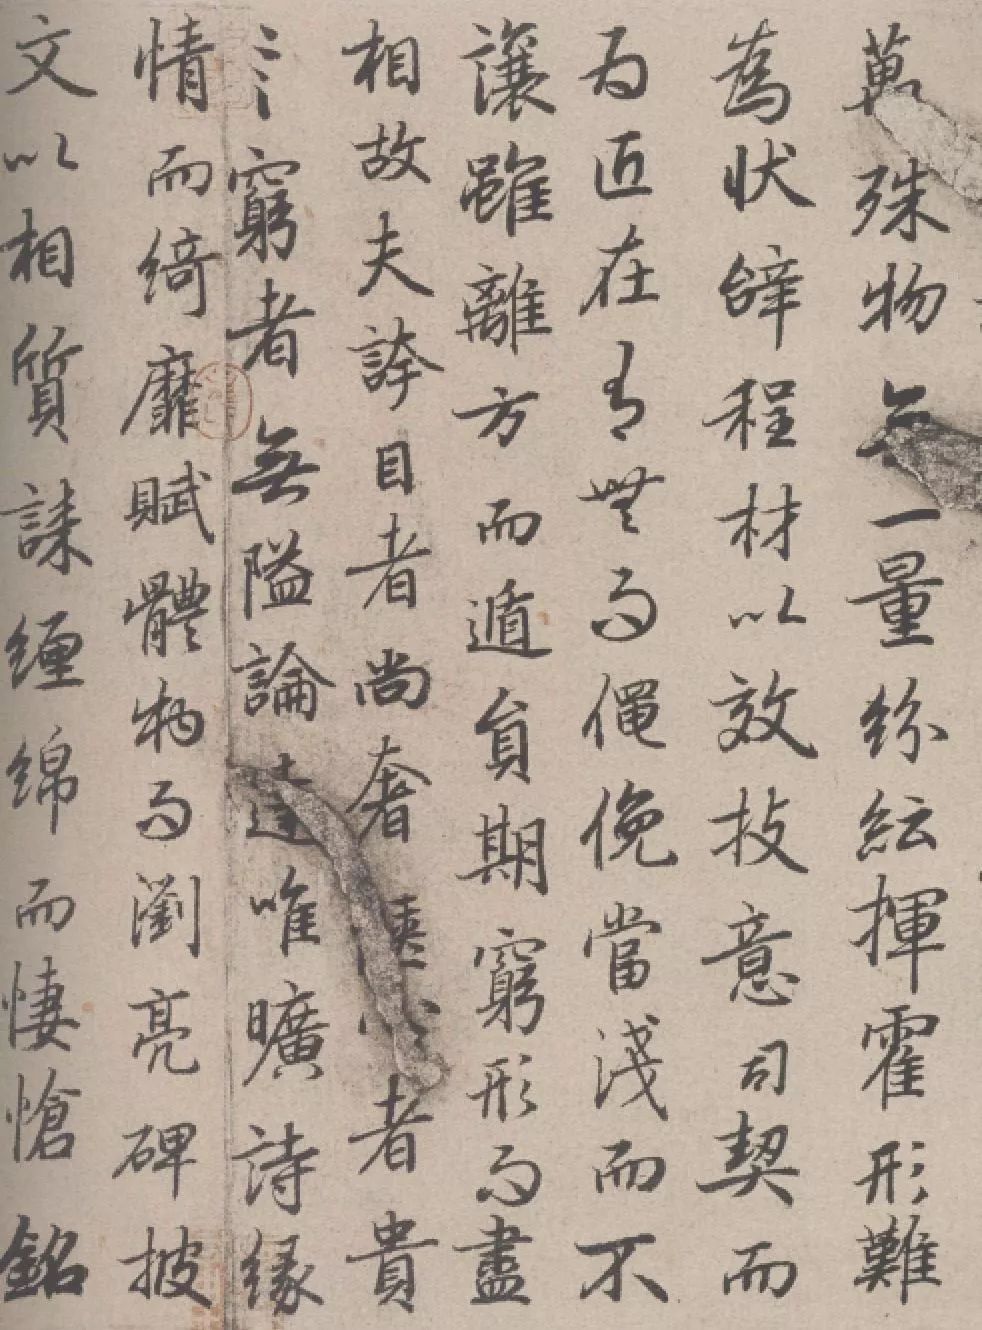 萬殊物無一量紛紜揮霍形難
為狀辭程材以效技意司契而
為匠在有無而僶俛當淺而不
讓雖離方而遁員期窮形而盡
相故夫誇目者尚奢愜心者貴
窮者無隘論達唯曠詩緣
情而綺靡賦體物而瀏亮碑披
文以相質誄纏綿而悽愴銘